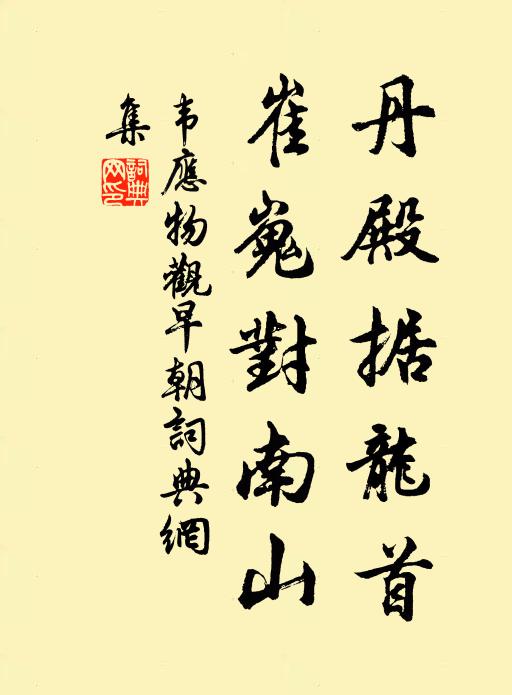 丹殿据龍首
崔嵬對南山
韦應物觀早朝詞典網
集
詞典网印